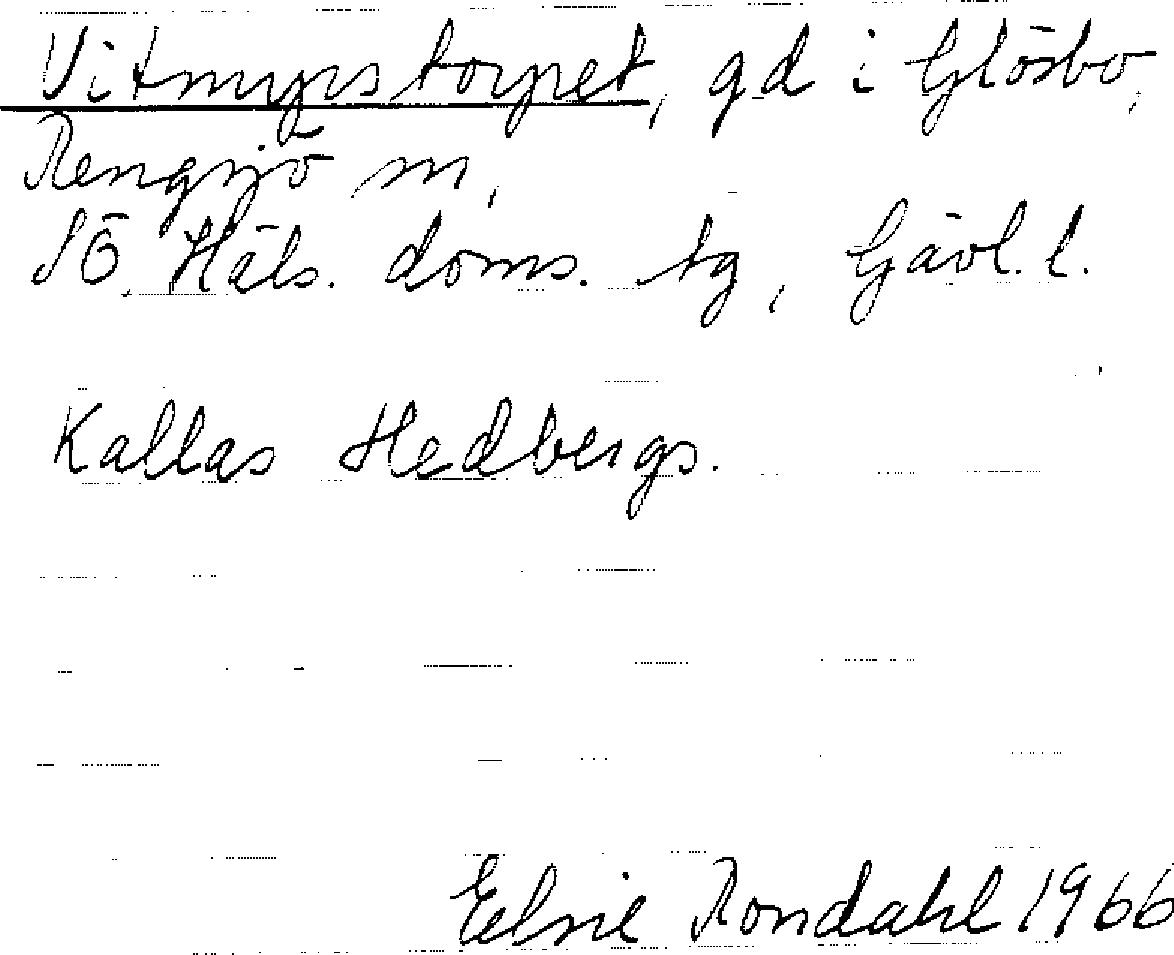 Vitmyrstorpet, gd i Glösbo,
Rengsjö sn,
SÖ. Häls. doms. tg, Gävl. l.
Kallas Hedbergs.
Elsie Rondahl 1966